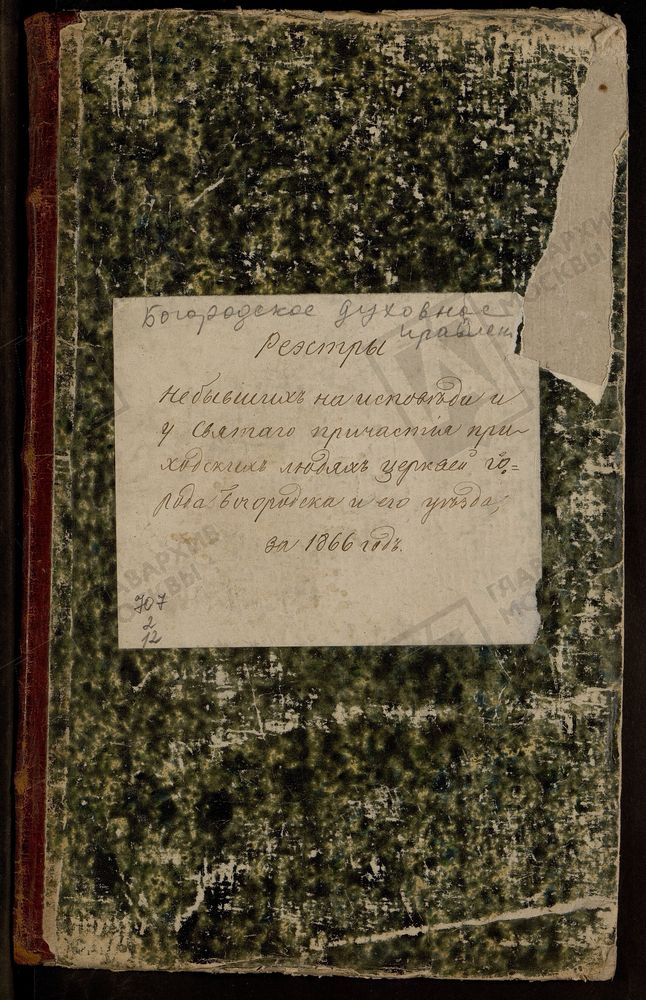 Богородское духовное
правлен
Реэстры
небывшихъ на исповѣди и
у святаго причастія при-
ходскихъ людяхъ церквей го=
рода Богородска и его уѣзда,
за 1866 годъ.
707
2
12
ГЛАВАРХИВ
МОСКВЫ